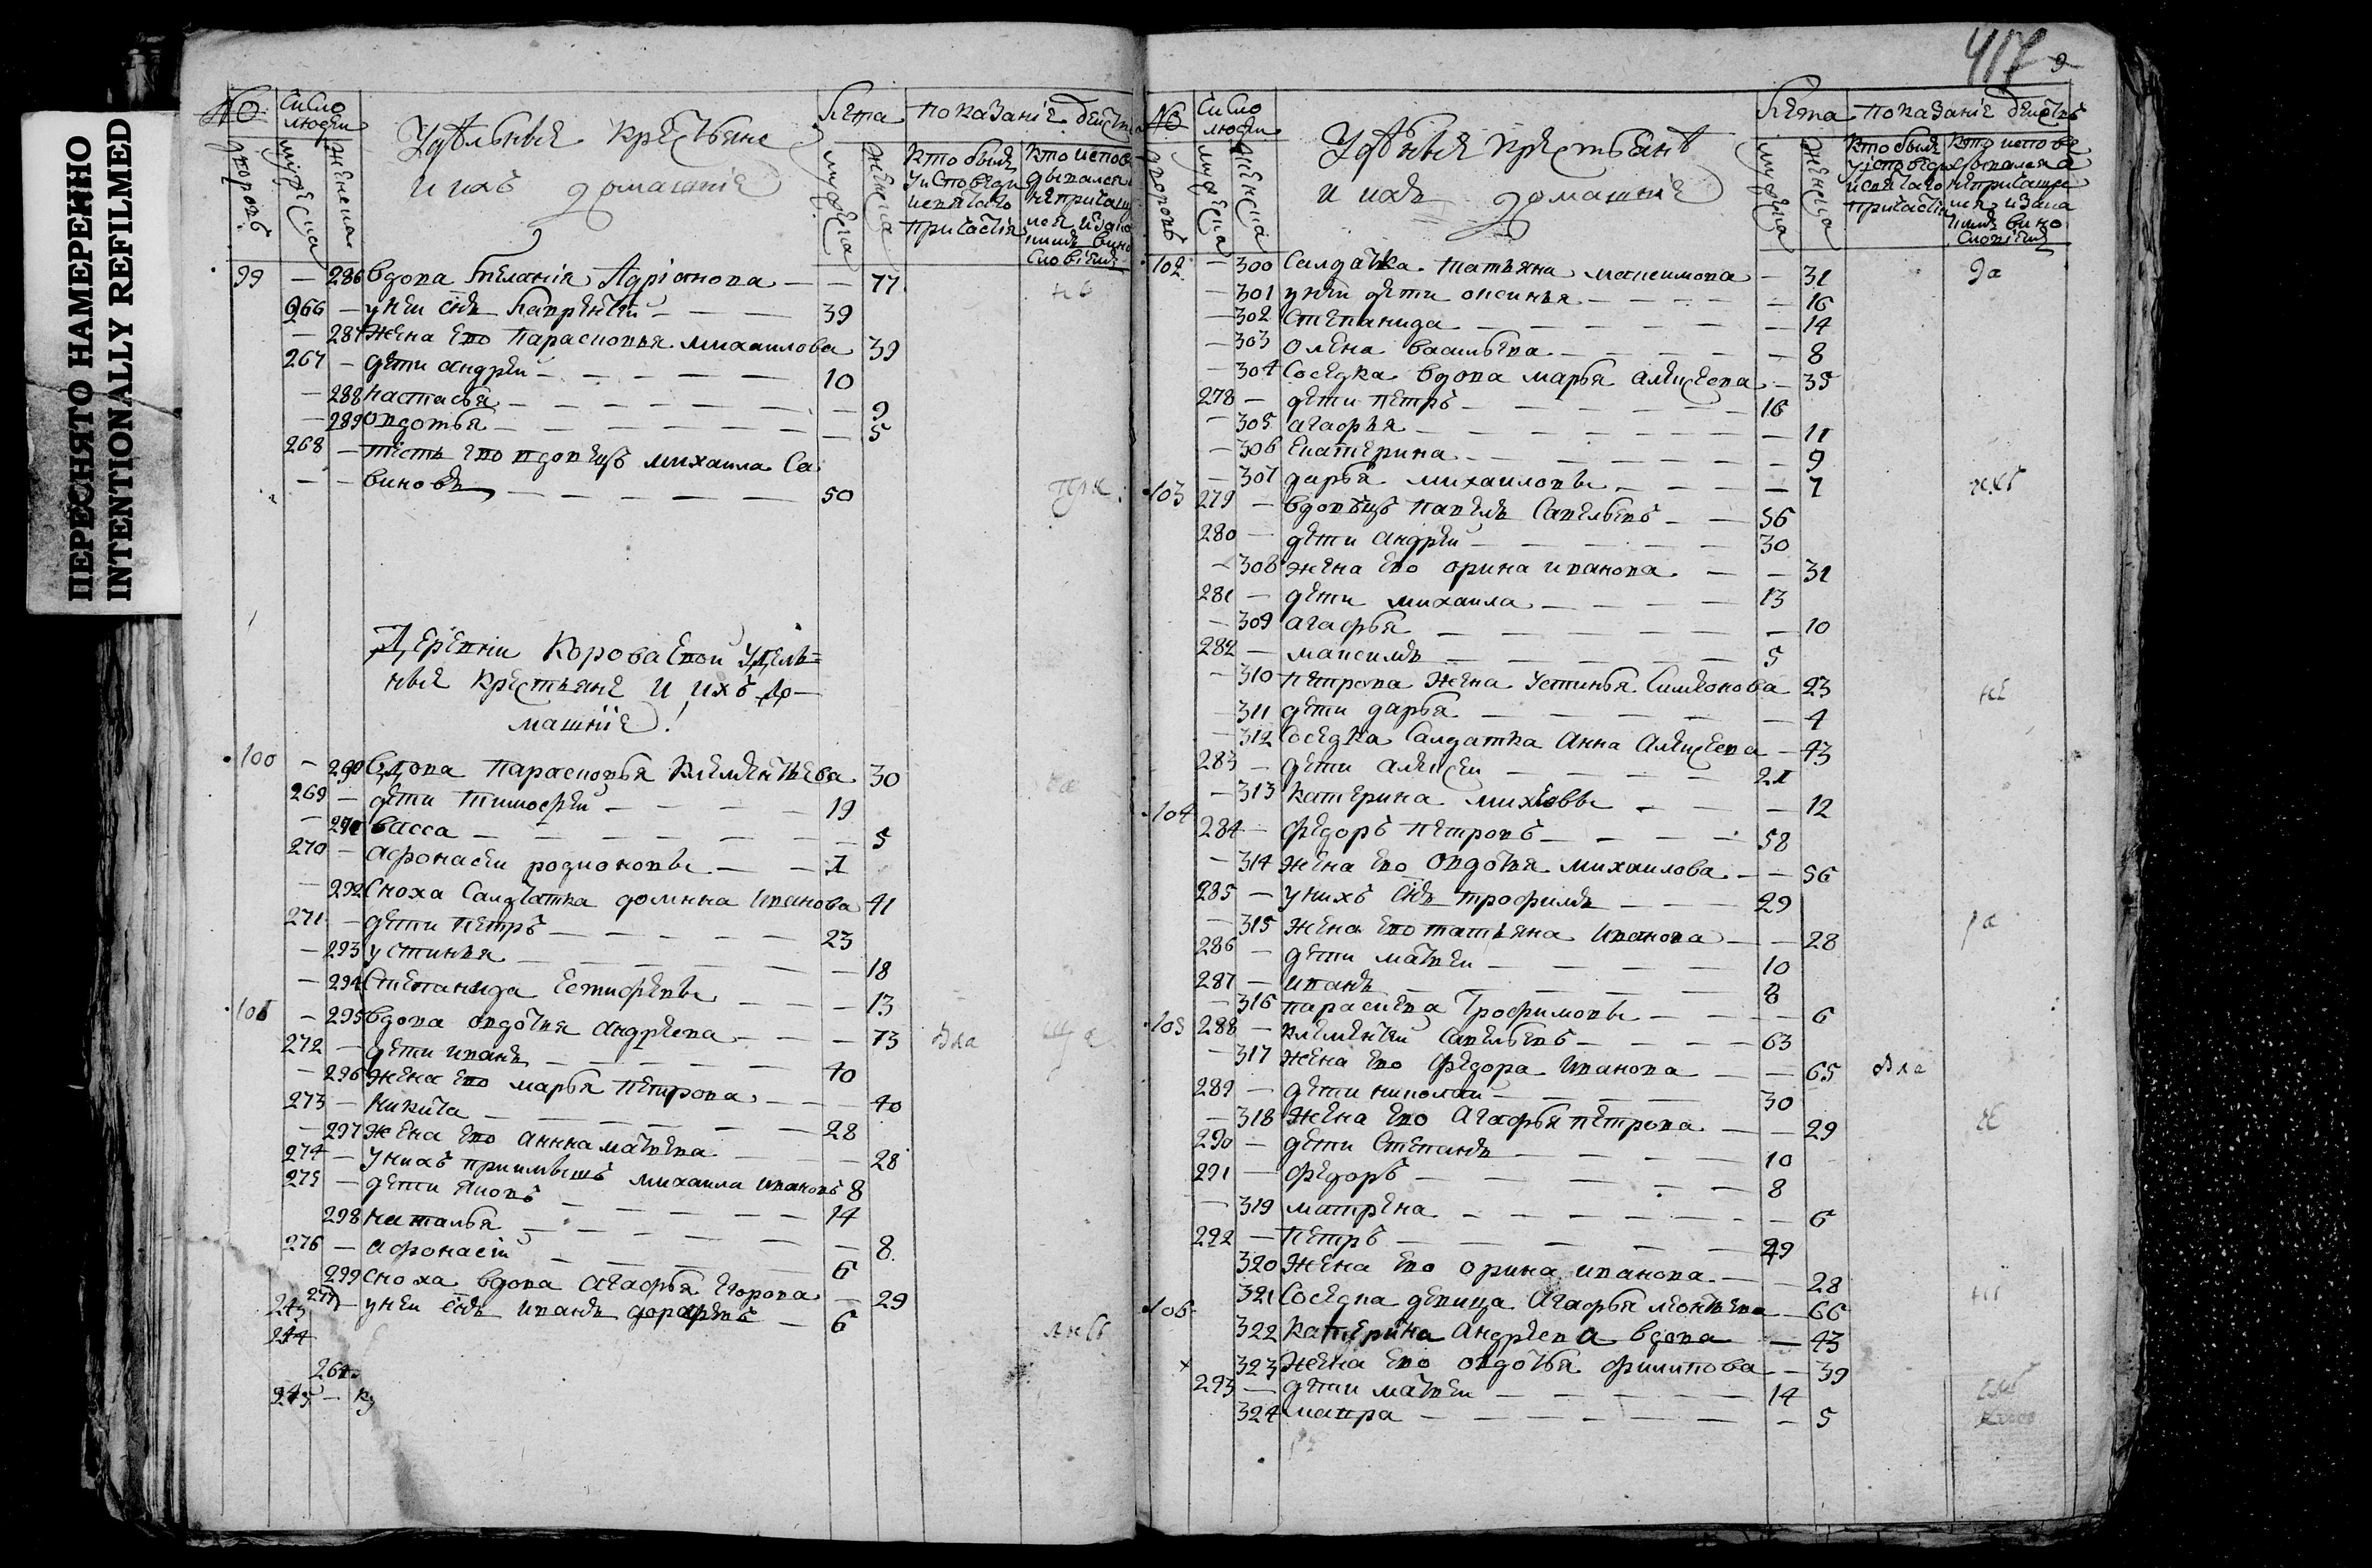 ПЕРЕСНЯТО НАМЕРЕННО
INTENTIONALLY REFILMED
№ Число людей Лета показаніе
Удѣльныя крестьяне
и ихъ домашнія
дворовъ мужеска женска мужеска женска
кто былъ
у исповеди
и святаго
причастія
99 — 286 вдова Меланія Адріанова — — 77
266 — у неи снъ Лаврентей — — 39
— 287 жена ево Парасковья михаилова 39
267 — дети андреи — — — 10
— 288 настасья — — — 9
— 289 овдотья — — — 5
268 — тесть ево вдовецъ михаила Са
— — виновъ — — — 50
Деревни Короваевои Удель=
ныя крестьяне и ихъ до—
машніе
100 — 290 Вдова Парасковья Клементьева 30
269 — дети тимофеи — — — 19
— 291 васса — — — 5
270 — афонасеи родионовы — — 1
— 292 Сноха Салдатка домнна иванова 41
271 — дети петръ — — — 23
— 293 устинья — — — 18
— 294 Степанида Естифеевы — — 13
101 — 295 вдова овдотья андреева — — 73
272 — дети иванъ — — — 40
— 296 жена ево марья петрова — — 40
273 — Никита — — — 28
— 297 жена ево аннна матвева — 28
274 — у нихъ приимышъ михаила ивановъ 8
275 — дети яковъ — — — 14
298 наталья — — — 8
276 — афонасіи — — — 6
299 сноха вдова агафья егорова — 29
277 — у неи снъ иванъ — 6
244
264
245 —
417
9
№ Число людей Лета показаніе
Удѣлныя крестьянѣ
и ихъ домашніе
дворовъ мужеска женска мужеска женска
кто былъ
у исповеди
и святаго
причастія
102 — 300 Салдатка татьяна максимова — 31
— 301 у неи дети оксинья — — — 16
— 302 степанида — — — 14
— 303 олена васильева — — — 8
— 304 Соседка вдова марья алексеева — 35
278 — дети петръ — — — 16
— 305 агафья — — — 11
— 306 Екатерина — — — 9
— 307 дарья михаиловы — — 7
103 279 — вдовецъ павелъ Савельевъ — — 56
280 — дети андреи — — — 30
— 308 жена ево орина иванова — — 31
281 — дети михаила — — — 13
— 309 агафья — — — 10
282 — максимъ — — — 5
— 310 петрова жена Устинья Симеонова 23
— 311 дети дарья — — — 4
— 312 Соседка Салдатка Анна Алексеева — 43
283 — дети алексеи — — — 21
— 313 катерина — — 12
104 284 — федоръ петровъ — — — 58
— 314 жена ево овдотья михаилова — — 56
285 — у нихъ снъ трофимъ — — — 29
— 315 жена ево татьяна иванова — — 28
286 — дети матвеи — — — 10
287 — иванъ — — — 8
— 316 парасковья Трофимовы — — — 6
105 288 — клементеи савельевъ — — — 63
— 317 жена ево федора иванова — — 65
289 — дети николаи — — — 30
— 318 жена ево Агафья петрова — — 29
290 — дети Степанъ — — — 10
291 — федоръ — — — 8
— 319 матрена — — — 6
292 — петръ — — — 29
320 жена ево орина иванова — — 28
321 Соседка девица Агафья леонтьева — 66
106 322 катерина Андреева вдова — 43
323 жена ево овдотья филипова — 39
293 — дети матвеи — — — 14
324 мавра — — — 5